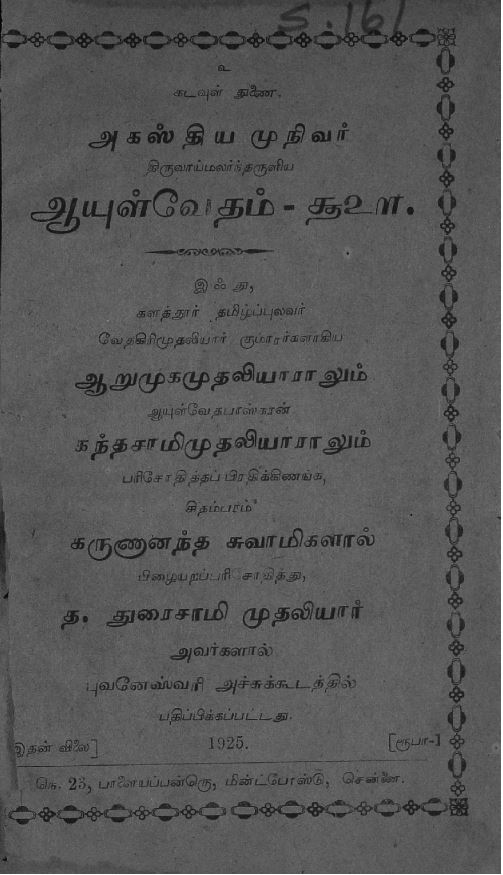 S. 161
உ
கடவுள் துணை.
அகஸ்திய முநிவர்
திருவாய்மலர்ந்தருளிய
ஆயுள்வேதம் - ௲௨௱.
இஃது,
களத்தூர் தமிழ்ப்புலவர்
வேதகிரிமுதலியார் குமாரர்களாகிய
ஆறுமுகமுதலியாராலும்
ஆயுள்வேதபாஸ்கரன்
கந்தசாமிமுதலியாராலும்
பரிசோதித்தப் பிரதிக்கிணங்க,
சிதம்பரம்
கருணானந்த சுவாமிகளால்
பிழையறப்பரிசோதித்து,
த. துரைசாமி முதலியார்
அவர்களால்
புவனேஸ்வரி அச்சுக்கூடத்தில்
பதிப்பிக்கப்பட்டது.
இதன் விலை] 1925. [ரூபா-]
நெ. 25, பாளையப்பன்தெரு, மீன்ட்போஸ்டு, சென்னை.